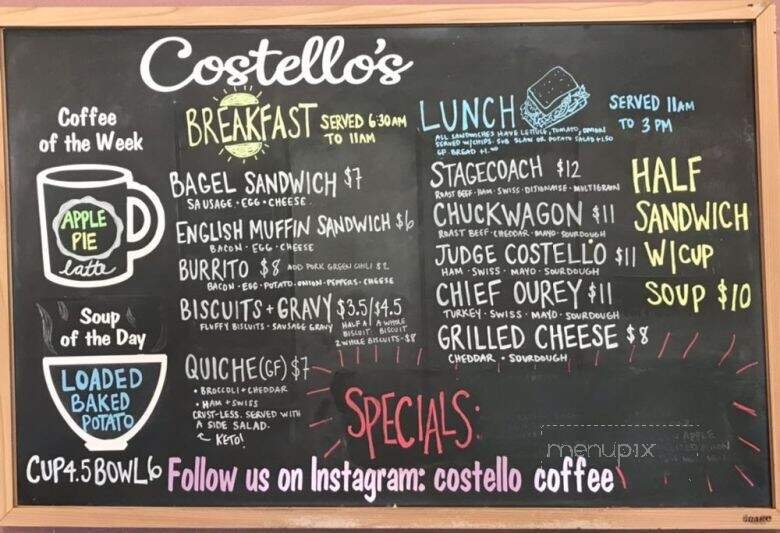 Costello's
Coffee
of the Week
APPLE
PIE
latte
Soup
of the Day
LOADED
BAKED
POTATO
CUP 4.5 BOWL 6
BREAKFAST SERVED 6:30AM
TO 11AM
BAGEL SANDWICH $7
SAUSAGE · EGG · CHEESE
ENGLISH MUFFIN SANDWICH $6
BACON · EGG · CHEESE
BURRITO $8 ADD PORK GREEN CHILI $2
BACON · EGG · POTATO · ONION · PEPPERS · CHEESE
BISCUITS + GRAVY $3.5/$4.5
FLUFFY BISCUITS · SAUSAGE GRAVY
HALF A BISCUIT
A WHOLE BISCUIT
2 WHOLE BISCUITS - $8
QUICHE (GF) $7
• BROCCOLI + CHEDDAR
• HAM + SWISS
CRUST-LESS. SERVED WITH
A SIDE SALAD.
KETO!
LUNCH
SERVED 11AM
TO 3PM
ALL SANDWICHES HAVE LETTUCE, TOMATO, ONION
SERVED W/CHIPS. SUB SLAW OR POTATO SALAD +1.50
GF BREAD +1.00
STAGECOACH $12
ROAST BEEF · HAM · SWISS · DIJONAISE · MULTIGRAIN
CHUCKWAGON $11
ROAST BEEF · CHEDDAR · MAYO · SOURDOUGH
JUDGE COSTELLO $11
HAM · SWISS · MAYO · SOURDOUGH
CHIEF OUREY $11
TURKEY · SWISS · MAYO · SOURDOUGH
GRILLED CHEESE $8
CHEDDAR · SOURDOUGH
HALF
SANDWICH
W/CUP
SOUP $10
SPECIALS:
menupix
APPLE
Follow us on Instagram: costello coffee